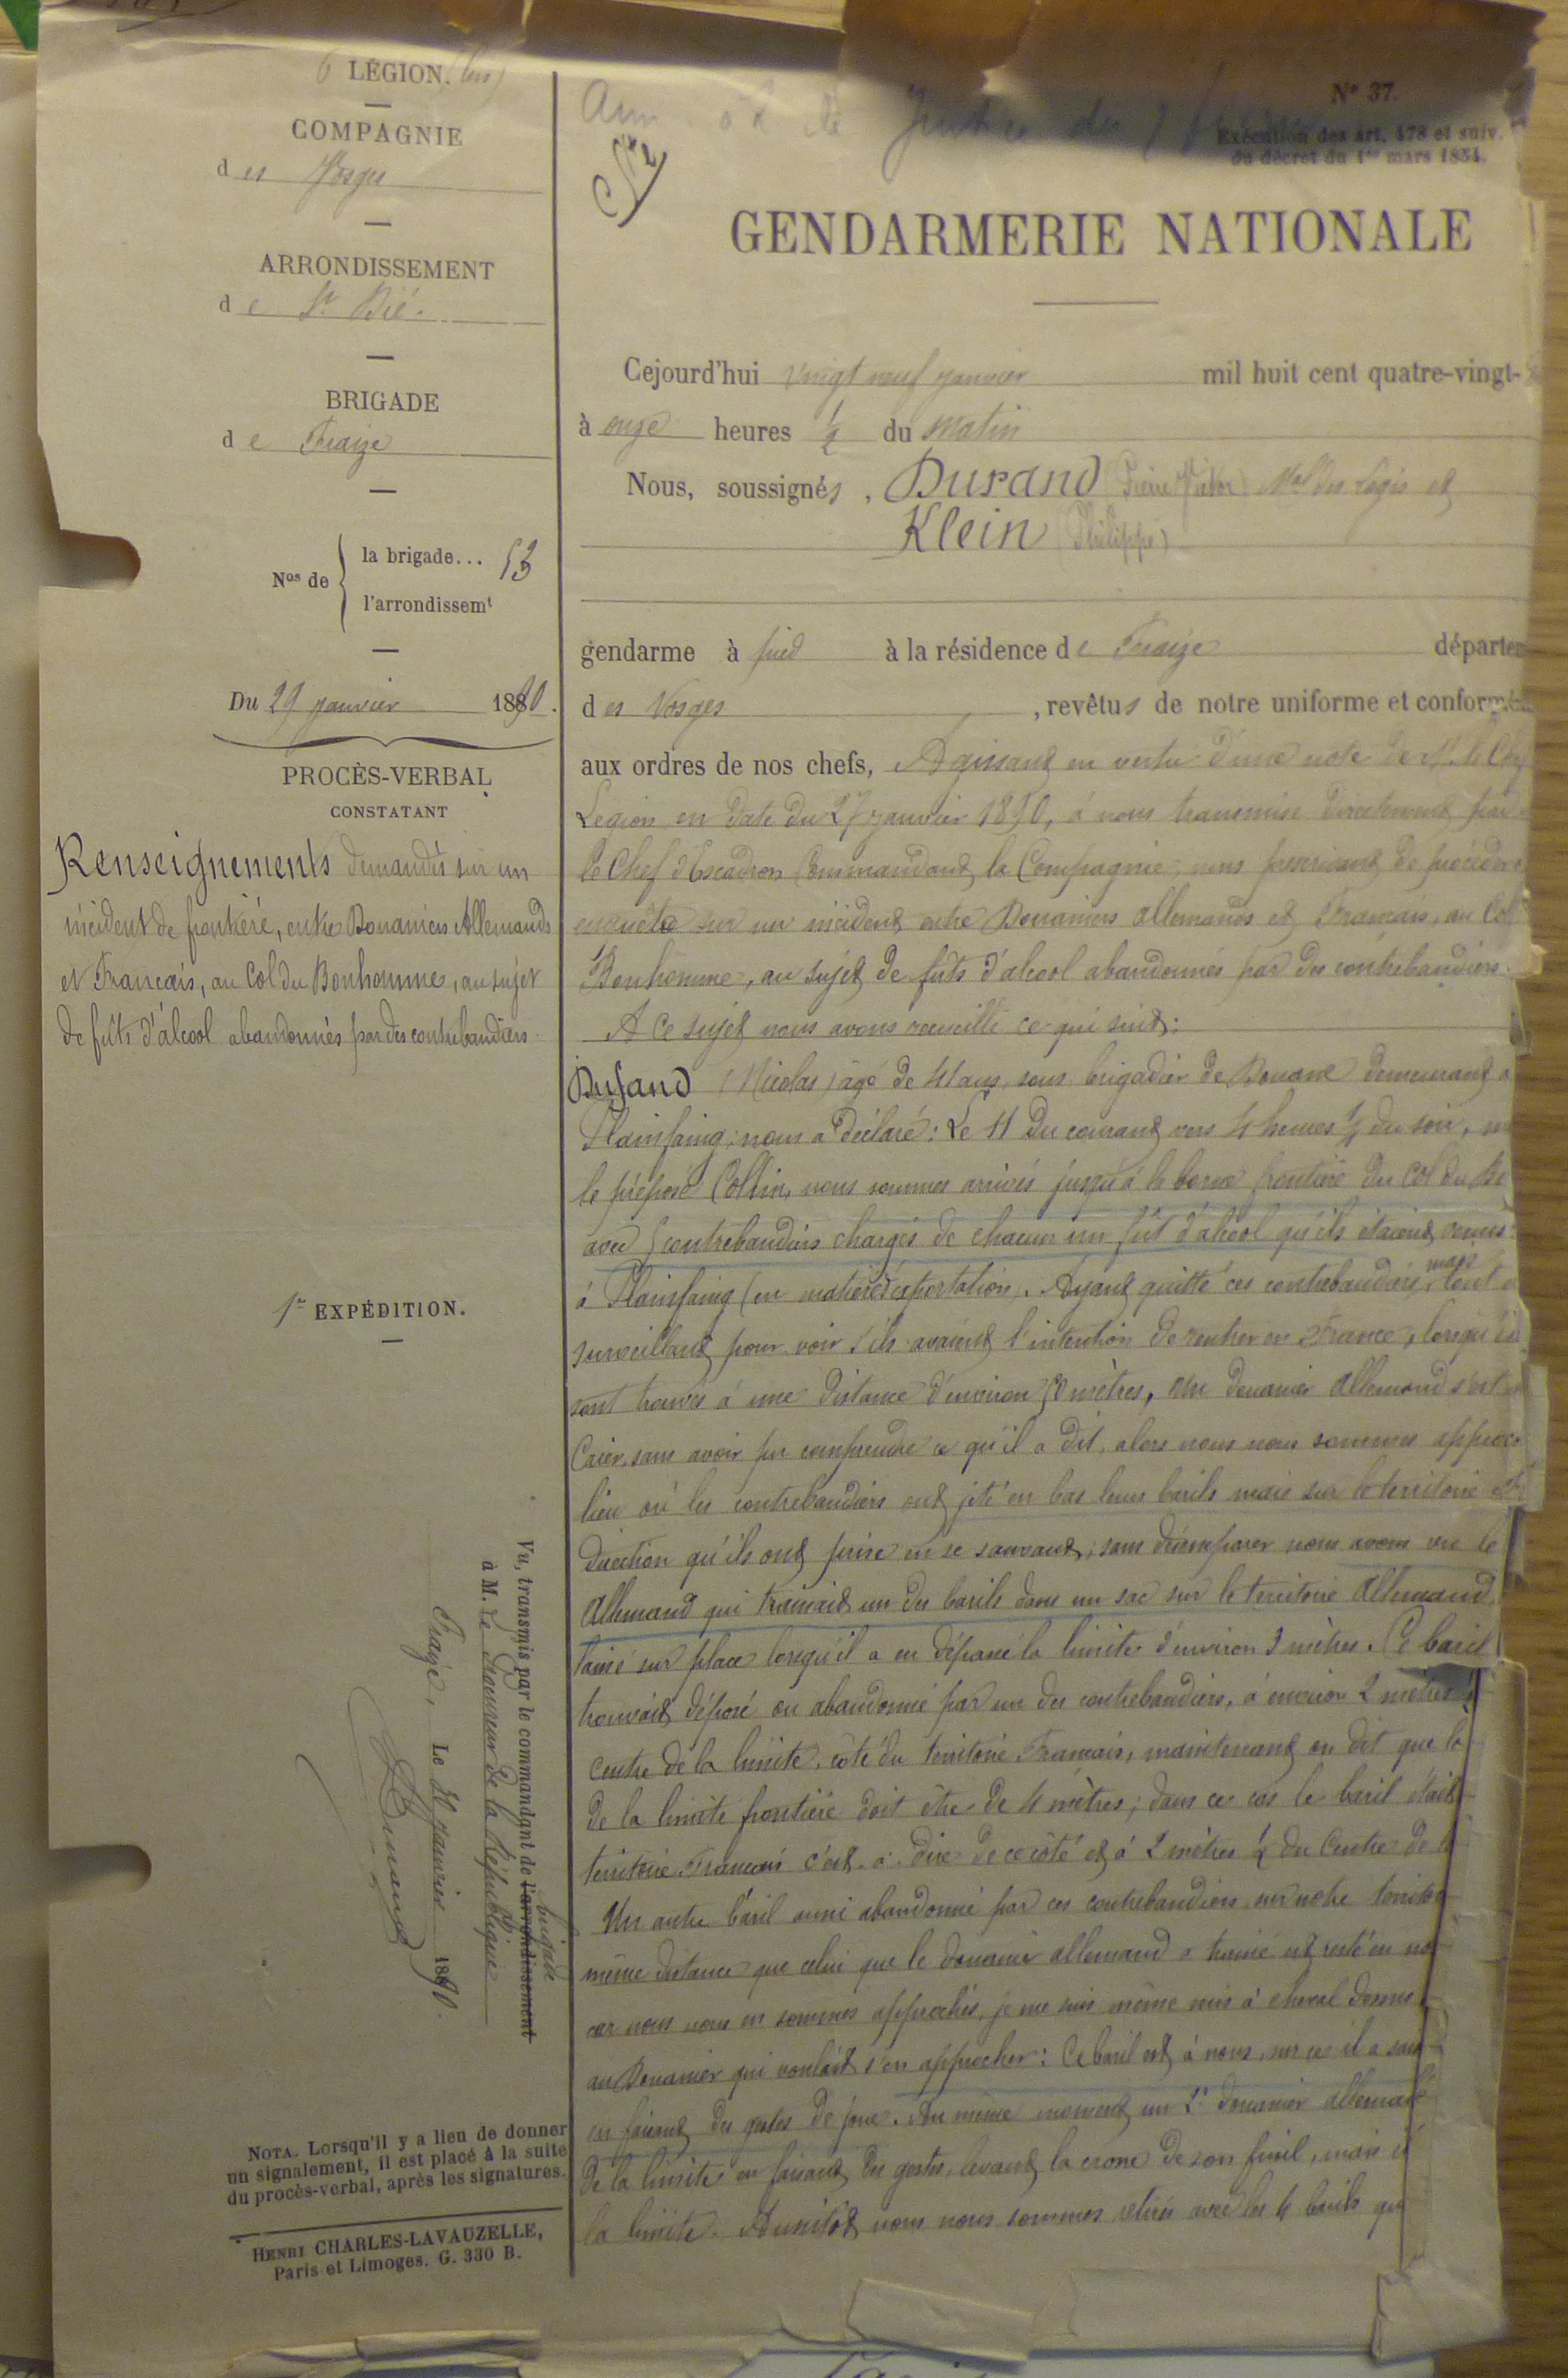 6 LÉGION. (bis)
COMPAGNIE
des Vosges
ARRONDISSEMENT
de St Dié.
BRIGADE
de Fraize
Nos de
la brigade... 53
l'arrondissemt
Du 29 janvier 1890.
PROCÈS-VERBAL
CONSTATANT
Renseignements demandés sur un
incident de frontière, entre Douaniers Allemands
et Français, au Col du Bonhomme, au sujet
de fûts d'alcool abandonnés par des contrebandiers.
1re EXPÉDITION.
Vu, transmis par le commandant de l'arrondissement brigade
à M. Le Procureur de la République
Fraize, Le janvier 1890.
Durand
NOTA. Lorsqu'il y a lieu de donner
un signalement, il est placé à la suite
du procès-verbal, après les signatures.
HENRI CHARLES-LAVAUZELLE,
Paris et Limoges. G. 330 B.
No 37.
Exécution des art. 478 et suiv.
du décret du 1er mars 1854.
GENDARMERIE NATIONALE
Cejourd'hui vingt neuf janvier mil huit cent quatre-vingt-
à onze heures ½ du matin
Nous, soussignés, Durand (Pierre Victor) Mal des Logis et
Klein (Philippe)
gendarme à pied à la résidence de Fraize départem
des Vosges, revêtus de notre uniforme et conformé
aux ordres de nos chefs, Agissant en vertu d'une note de M. le Chef
Légion en date du 27 janvier 1890, à nous transmise directement par
le Chef d'Escadron Commandant la Compagnie, nous prescrivant de procéder
enquête sur un incident entre Douaniers allemands et Français, au Col
Bonhomme, au sujet de fûts d'alcool abandonnés par des contrebandiers.
A ce sujet nous avons recueilli ce qui suit:
Durand (Nicolas) âgé de 41 ans, sous brigadier de Douane demeurant à
Plainfaing, nous a déclaré: Le 11 du courant vers 4 heures ½ du soir,
le préposé Collin, nous sommes arrivés jusqu'à la borne frontière du Col du Bo
avec 5 contrebandiers chargés de chacun un fût d'alcool qu'ils étaient venus
à Plainfaing (en matière d'exportation). Ayant quitté ces contrebandiers, mais tout
surveillant pour voir s'ils avaient l'intention de rentrer en France, lorsqu'ils
sont trouvés à une distance d'environ 50 mètres, un douanier allemand s'est
crier, sans avoir pu comprendre ce qu'il a dit, alors nous nous sommes approch
lieu où les contrebandiers ont jeté en bas leurs barils mais sur le territoire
direction qu'ils ont prise en se sauvant; sans désemparer nous avons vu le
Allemand qui trainait un des barils dans un sac sur le territoire Allemand
laissé sur place lorsqu'il a eu dépassé la limite d'environ 3 mètres. Ce baril
trouvait déposé ou abandonné par un des contrebandiers, à environ 2 mètres
centre de la limite, côté du territoire Français, maintenant on dit que la
de la limite frontière doit être de 4 mètres; dans ce cas le baril était
territoire Français c'est-à-dire de ce côté et à 2 mètres ½ du centre de la
Un autre baril aussi abandonné par ces contrebandiers sur notre territo
même distance que celui que le douanier allemand a trainé est resté en no
car nous nous en sommes approchés, je me suis même mis à cheval dessus
au Douanier qui voulait s'en approcher: Ce baril est à nous, sur ce il a
en faisant des gestes de joue. Au même moment un 2e douanier allemand
de la limite en faisant des gestes, levant la crosse de son fusil, mais
la limite. Aussitôt nous nous sommes retirés avec les 4 barils qu